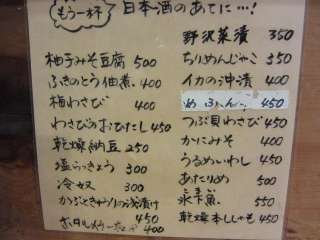 もう一杯
日本酒のあてに…!
野沢菜漬 350
ちりめんじゃこ 350
イカの沖漬 400
めふん 450
つぶ貝わさび 450
かにみそ 400
うるめいわし 450
あたりめ 500
550
乾燥本ししゃも 450
柚子みそ豆腐 500
ふきのとう佃煮 400
梅わさび 400
わさびのおひたし 450
乾燥納豆 250
塩らっきょう 300
冷奴 300
かぶときゅうりの浅漬け 450
400